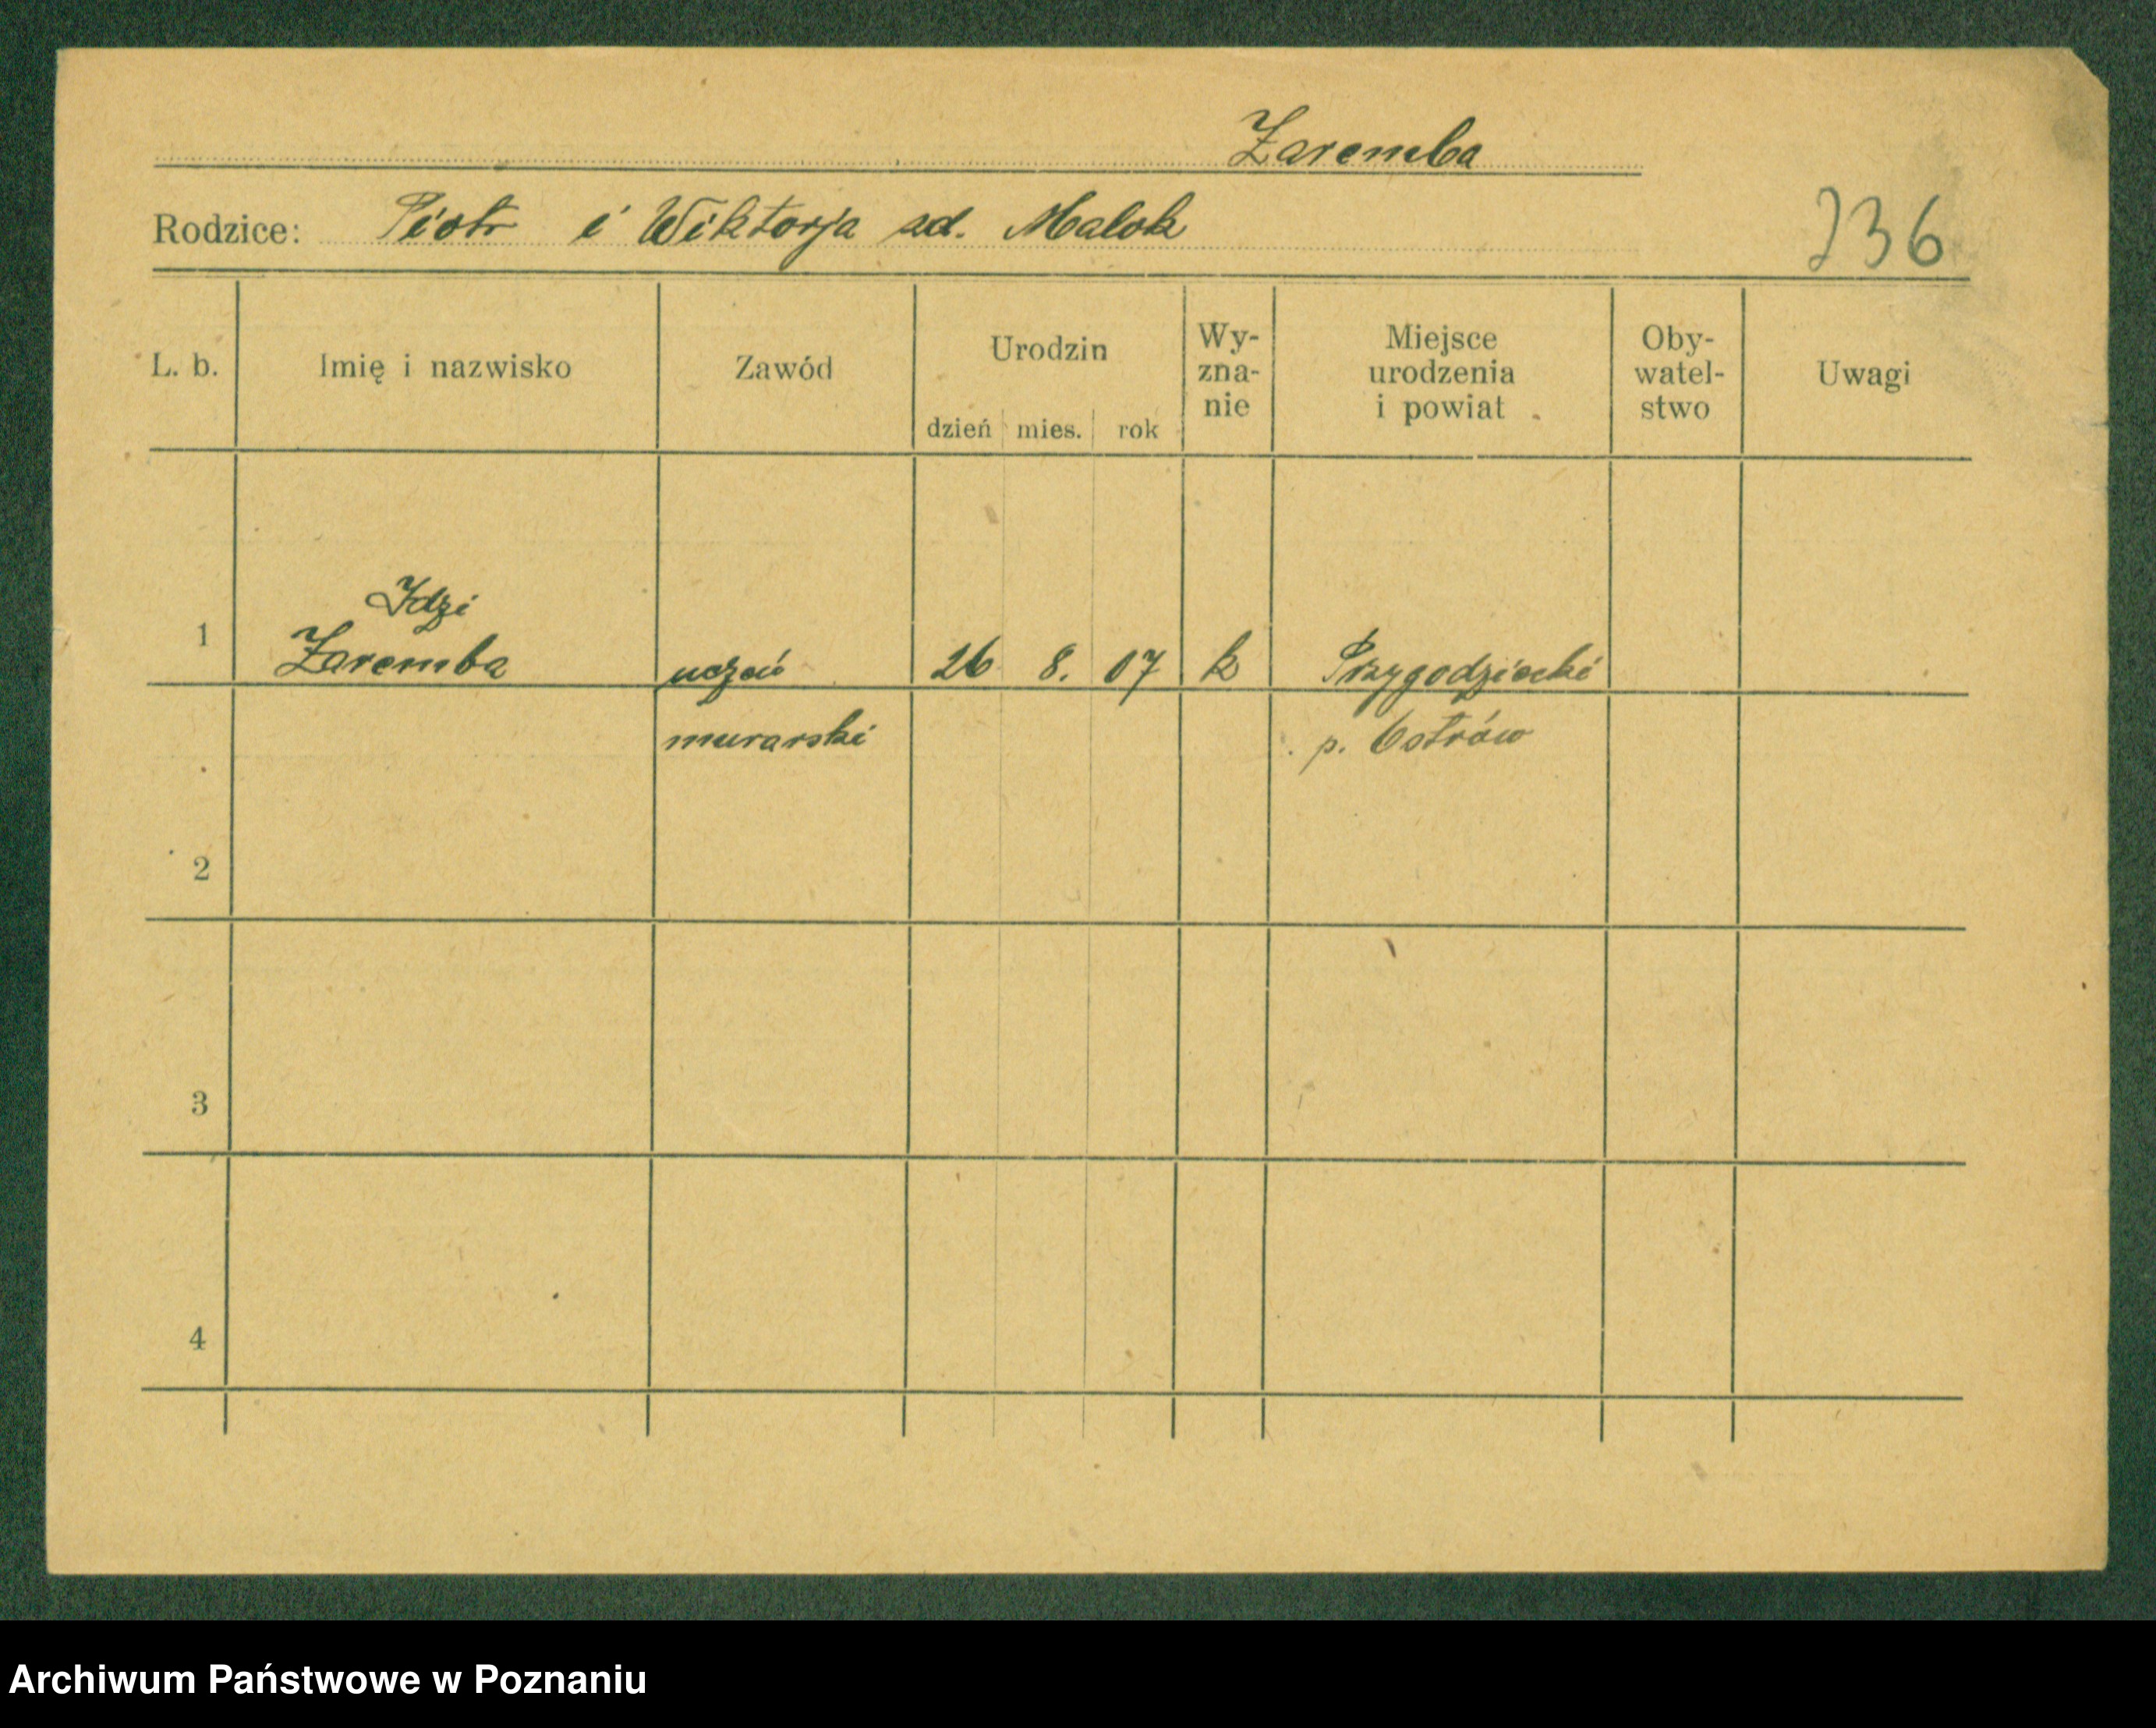 Zaremba
Rodzice: Piotr i Wiktorja zd. Malok
236
L. b. Imię i nazwisko Zawód Urodzin dzień mies. rok Wy-zna-nie Miejsce urodzenia i powiat Oby-watel-stwo Uwagi
Idzi
1 Zaremba uczeń 26 8. 07 k Przygodziczki
murarski p. Ostrów
2
3
4
Archiwum Państwowe w Poznaniu